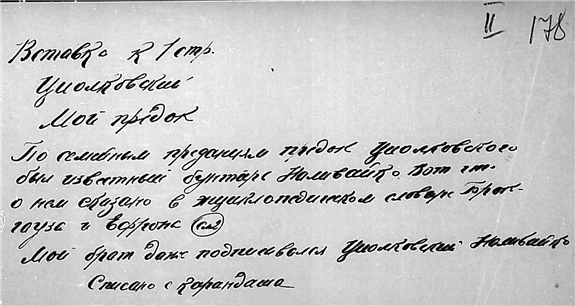 II 178
Вставка к 1 стр.
Циолковский
Мой предок
По семейным преданиям предок Циолковского
был известный бунтарь Наливайко. Вот что
о нем сказано в энциклопедическом словаре Брок-
гауза и Ефрона
Мой брат даже подписывался Циолковский Наливайко
Списано с карандаша